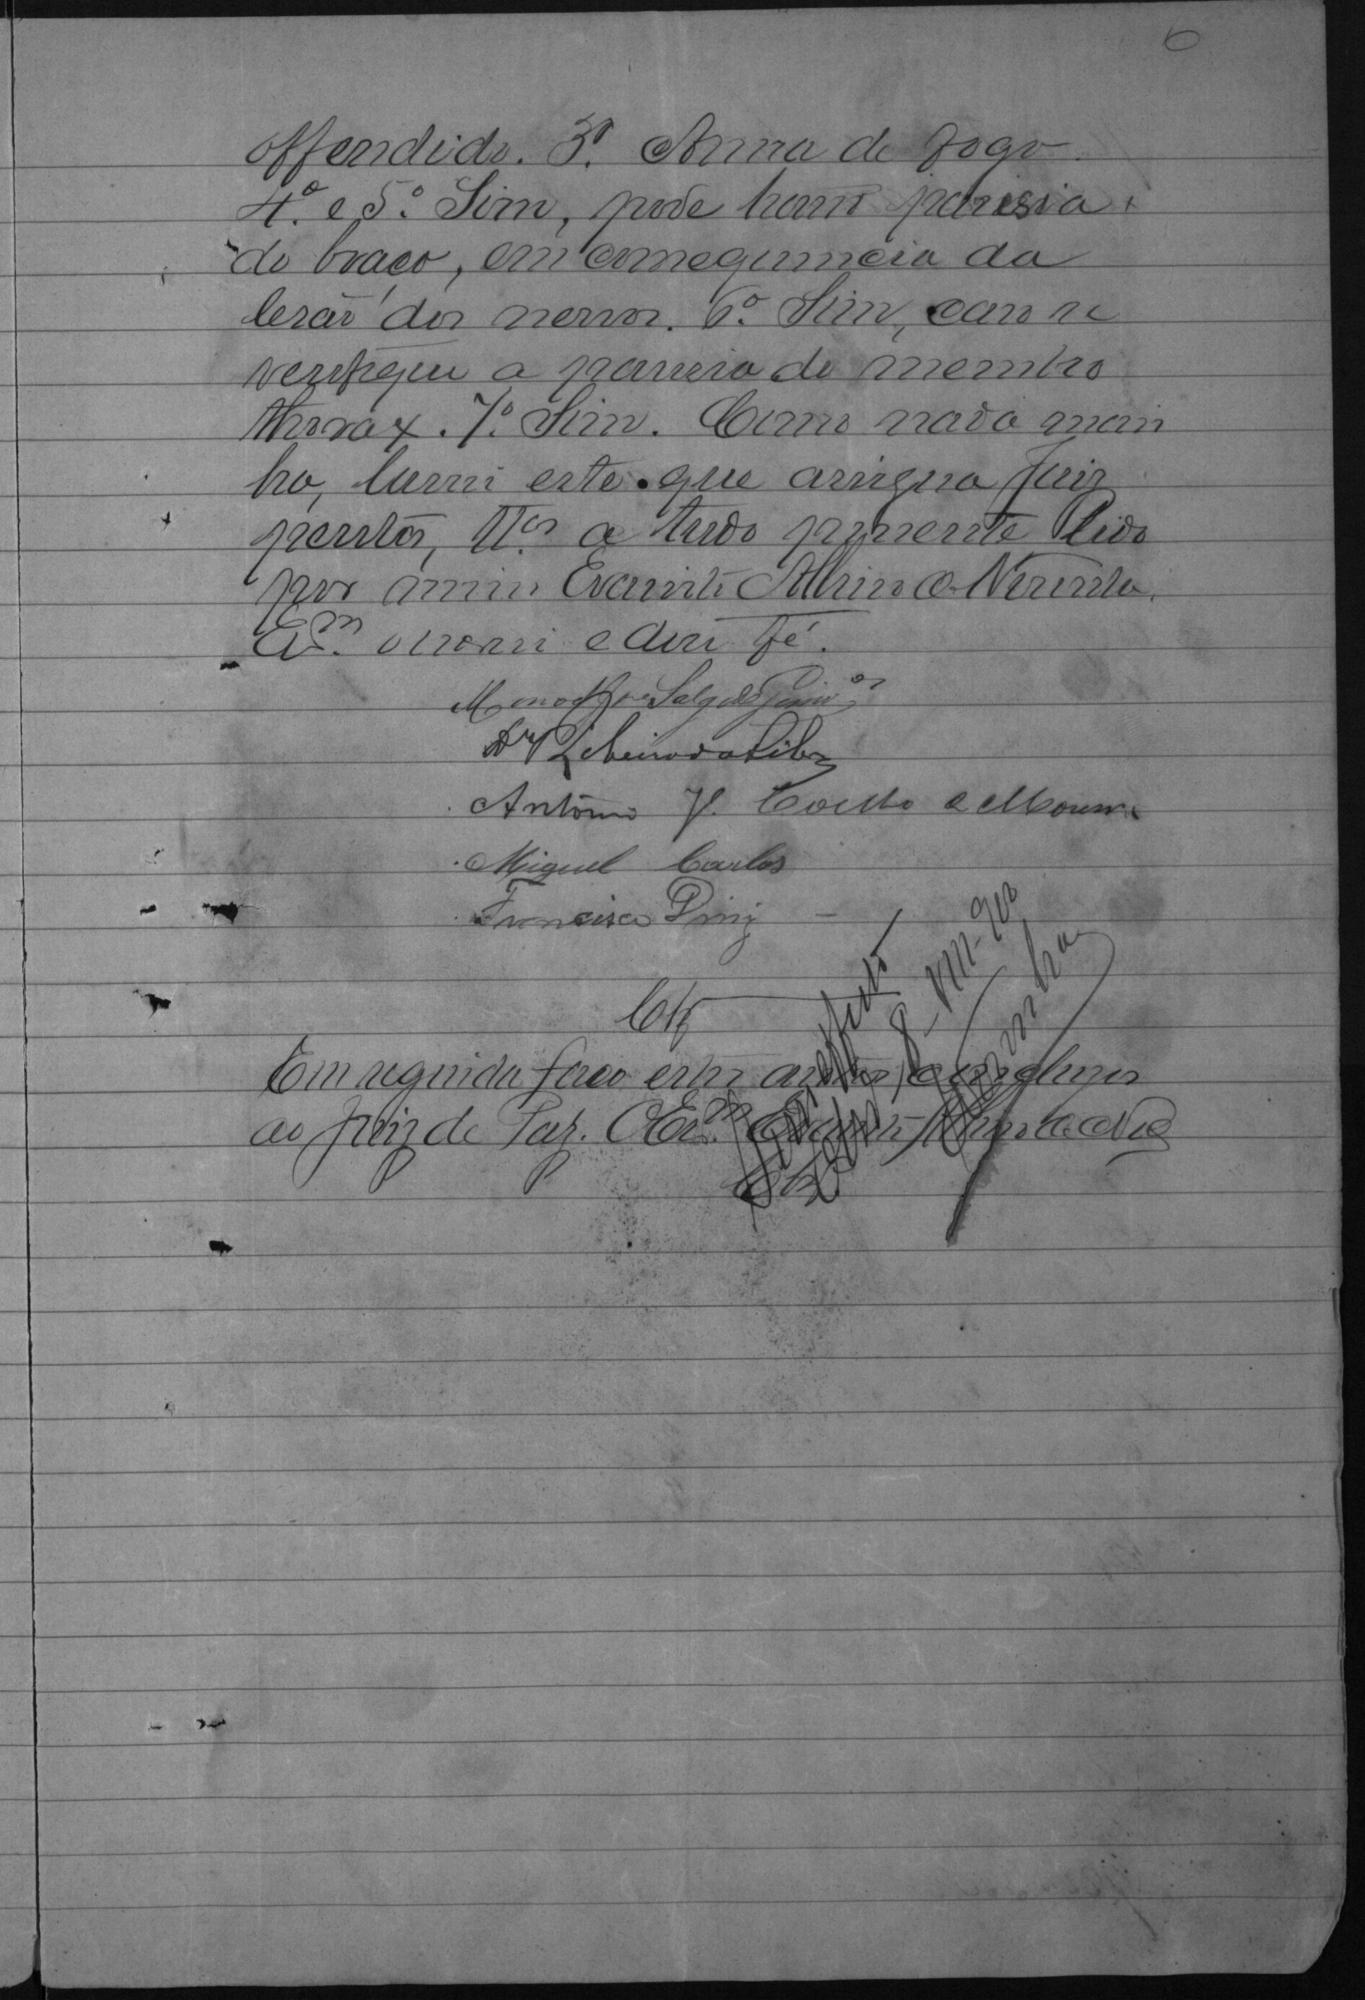 6
offendido. 3º. Arma de fogo.
4º. e 5º. Sim, pode haver paresia
do braço, em consequencia da
lesão dos nervos. 6º. Sim, caso se
verifique a paresia do membro
thorax. 7º. Sim. Como nada mais
ha, lavrei este que assigna Juiz
peritos, ttªs a tudo presente Lido
por mim Evaristo Albino
Esm. o escrevi e dou fé.
Salgado Junior
Dr Ribeiro da Silva
Antonio J. Coelho e Moura
Miguel Carlos
Francisco Diniz
Clz
Em seguida faço estes autos conclusos
ao Juiz de Paz. O Esm. Evaristo Albino
8-VIII-